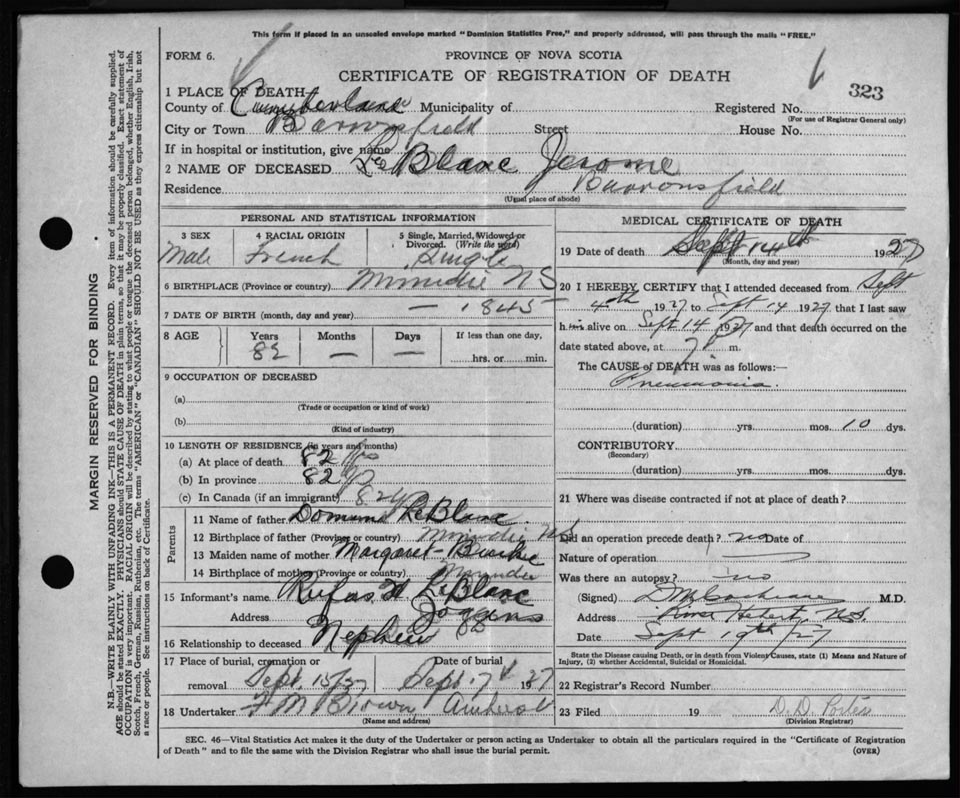 This form if placed in an unsealed envelope marked "Dominion Statistics Free," and properly addressed, will pass through the mails "FREE."
FORM 6.
PROVINCE OF NOVA SCOTIA
CERTIFICATE OF REGISTRATION OF DEATH
323
1 PLACE OF DEATH
County of Cumberland Municipality of Registered No.
(For use of Registrar General only)
City or Town Barronsfield Street House No.
If in hospital or institution, give name
2 NAME OF DECEASED LeBlanc Jerome
Residence Barronsfield
(Usual place of abode)
PERSONAL AND STATISTICAL INFORMATION
3 SEX
Male
4 RACIAL ORIGIN
French
5 Single, Married, Widowed or Divorced. (Write the word)
Single
6 BIRTHPLACE (Province or country) Minudie NS
7 DATE OF BIRTH (month, day and year) — 1845
8 AGE Years Months Days If less than one day,
82 — — hrs. or min.
9 OCCUPATION OF DECEASED
(a)
(Trade or occupation or kind of work)
(b)
(Kind of industry)
10 LENGTH OF RESIDENCE (in years and months)
(a) At place of death 82 yrs
(b) In province 82 yrs
(c) In Canada (if an immigrant) 82 y
Parents
11 Name of father LeBlanc
12 Birthplace of father (Province or country) Minudie NS
13 Maiden name of mother Margaret Burke
14 Birthplace of mother (Province or country) Minudie
15 Informant's name Rufus H LeBlanc
Address Joggins
16 Relationship to deceased Nephew
17 Place of burial, cremation or removal Sept. 15/27
Date of burial Sept. 17th 1927
18 Undertaker F M Brown Amherst
(Name and address)
MEDICAL CERTIFICATE OF DEATH
19 Date of death Sept 14th 1927
(Month, day and year)
20 I HEREBY CERTIFY that I attended deceased from Sept
4th 1927 to Sept 14 1927 that I last saw
him alive on Sept 14 1927 and that death occurred on
date stated above, at 7 P m.
The CAUSE of DEATH was as follows:—
Pneumonia.
(duration) yrs. mos. 10 dys.
CONTRIBUTORY
(Secondary)
(duration) yrs. mos. dys.
21 Where was disease contracted if not at place of death?
Did an operation precede death? no Date of
Nature of operation
Was there an autopsy? no
(Signed) Cochrane M.D.
Address River Hebert, N.S.
Date Sept 19th/27
State the Disease causing Death, or in death from Violent Causes, state (1) Means and Nature of Injury, (2) whether Accidental, Suicidal or Homicidal.
22 Registrar's Record Number
23 Filed 19 D. D. Porter
(Division Registrar)
SEC. 46—Vital Statistics Act makes it the duty of the Undertaker or person acting as Undertaker to obtain all the particulars required in the "Certificate of Registration
of Death" and to file the same with the Division Registrar who shall issue the burial permit. (OVER)
MARGIN RESERVED FOR BINDING
N.B.—WRITE PLAINLY WITH UNFADING INK—THIS IS A PERMANENT RECORD. Every item of information should be carefully supplied.
AGE should be stated EXACTLY. PHYSICIANS should STATE CAUSE OF DEATH in plain terms, so that it may be properly classified. Exact statement of
OCCUPATION is very important. RACIAL ORIGIN will be described by stating to what people or tongue the deceased person belonged, whether English, Irish,
Scotch, French, German, Russian, Ruthenian, etc. The terms "AMERICAN" or "CANADIAN" SHOULD NOT BE USED as they express citizenship but not
a race or people. See instructions on back of Certificate.